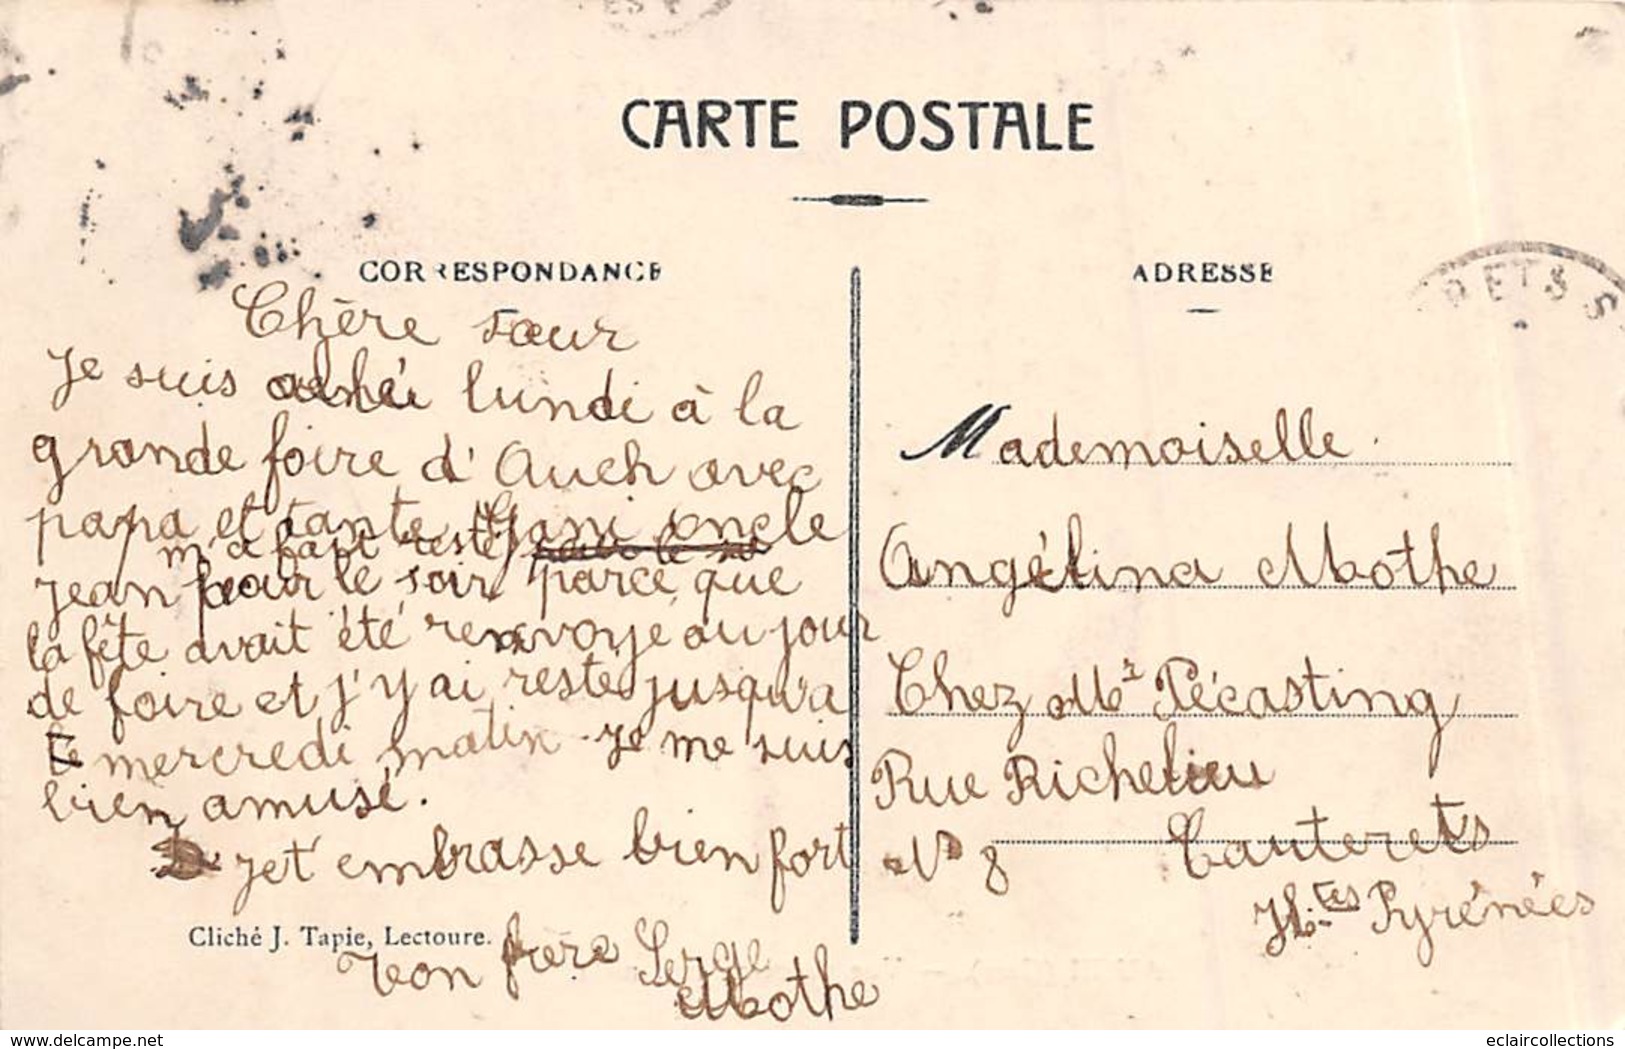 CARTE POSTALE
CORRESPONDANCE
Chère sœur
Je suis lundi à la
grande foire d'Auch avec
papa et tante oncle
m'a fait resté
jean pour le soir parce que
la fête avait été renvoye au jour
de foire et j'y ai reste jusqu'a
mercredi matin Je me suis
bien amusé.
Je t'embrasse bien fort
Cliché J. Tapie, Lectoure.
Ton frère Serge
Mothe
ADRESSE
RETS S
Mademoiselle
Angélina Mothe
Chez Mr Pécasting
Rue Richelieu
N° 8 Cauterets
Htes Pyrénées
www.delcampe.net
eclaircollections